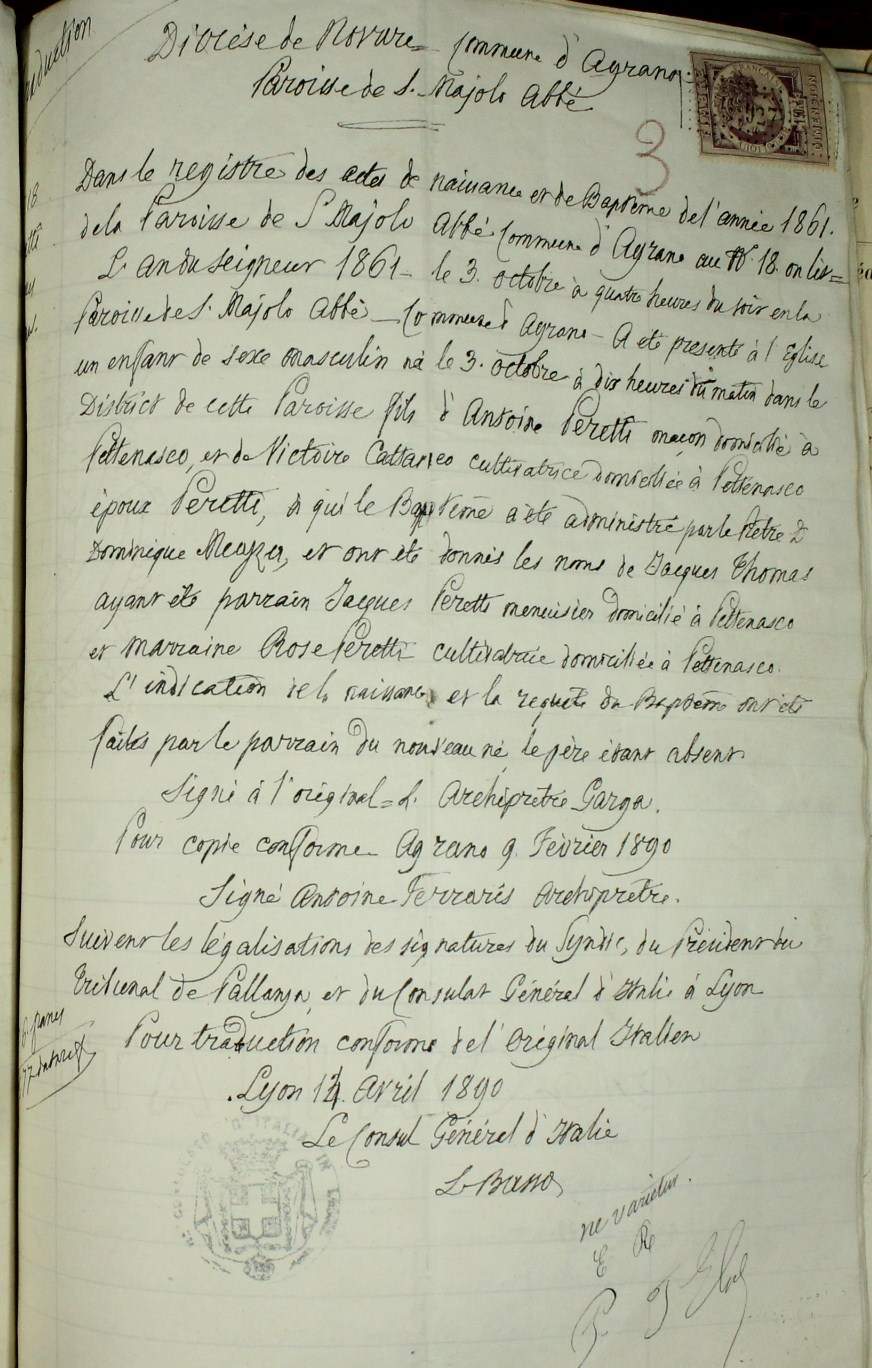 Diocèse de Novare = Commune d'Agrano
Paroisse de S. Majolo Abbé
3
Dans le registre des actes de naissance et de Baptême de l'année 1861.
de la Paroisse de S. Majolo Abbé Commune d'Agrano au N° 18. on lit =
L'an du Seigneur 1861 - le 3. octobre à quatre heures du soir en la
Paroisse de S. Majolo Abbé - Commune d'Agrano - A été présenté à l'Eglise
un enfant de sexe masculin né le 3. octobre à dix heures du matin dans le
District de cette Paroisse fils d'Antoine Peretti maçon domicilié à
Pettenasco, et de Victoire Cattaneo cultivatrice domiciliée à Pettenasco
époux Peretti, à qui le Baptême a été administré par le Prêtre D
Dominique, et ont été donnés les noms de Jacques Thomas
ayant été parrain Jacques Peretti menuisier domicilié à Pettenasco
et marraine Rose Peretti cultivatrice domiciliée à Pettenasco.
L'indication de la naissance et la requête du Baptême ont été
faites par le parrain du nouveau né, le père étant absent.
Signé à l'original = L'Archiprêtre Garga.
Pour copie conforme Agrano 9. Février 1890
Signé Antoine Ferraris Archiprêtre.
Suivent les légalisations des signatures du Syndic, du Président du
Tribunal de Pallanza, et du Consulat Général d'Italie à Lyon
Pour traduction conforme de l'Original Italien
Lyon 14. Avril 1890
Le Consul Général d'Italie
L. Basso
ne varietur.